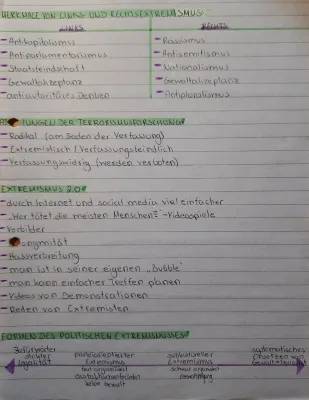 MERKMALE VON LINKS UND RECHTSEXTREMISMUS
LINKS RECHTS
- Antikapitalismus - Rassismus
- Antiparlamentarismus - Antisemitismus
- Staatsfeindschaft - Nationalismus
- Gewaltakzeptanz - Gewaltakzeptanz
- antiautoritäres Denken - Antipluralismus
TUNGEN DER TERRORISMUSFORSCHUNG
- Radikal (am Boden der Verfassung)
- Extremistisch (Verfassungsfeindlich
- Verfassungswidrig (werden verboten)
EXTREMISMUS 2.0
- durch Internet und social media viel einfacher
- „Wer tötet die meisten Menschen?" -Videospiele
- Vorbilder
- onymität
- Hassverbreitung
- man ist in seiner eigenen „bubble"
- man kann einfacher Treffen planen
- Videos von Demonstrationen
- Reden von Extremisten
FORMEN DES POLITISCHEN EXTREMISMUSES
Befürworter
Legalität
Extremismus
gut organisiert
keine Gewalt
subkultureller
Extremismus
schwer organisiert
systematisches
Umsetzen von